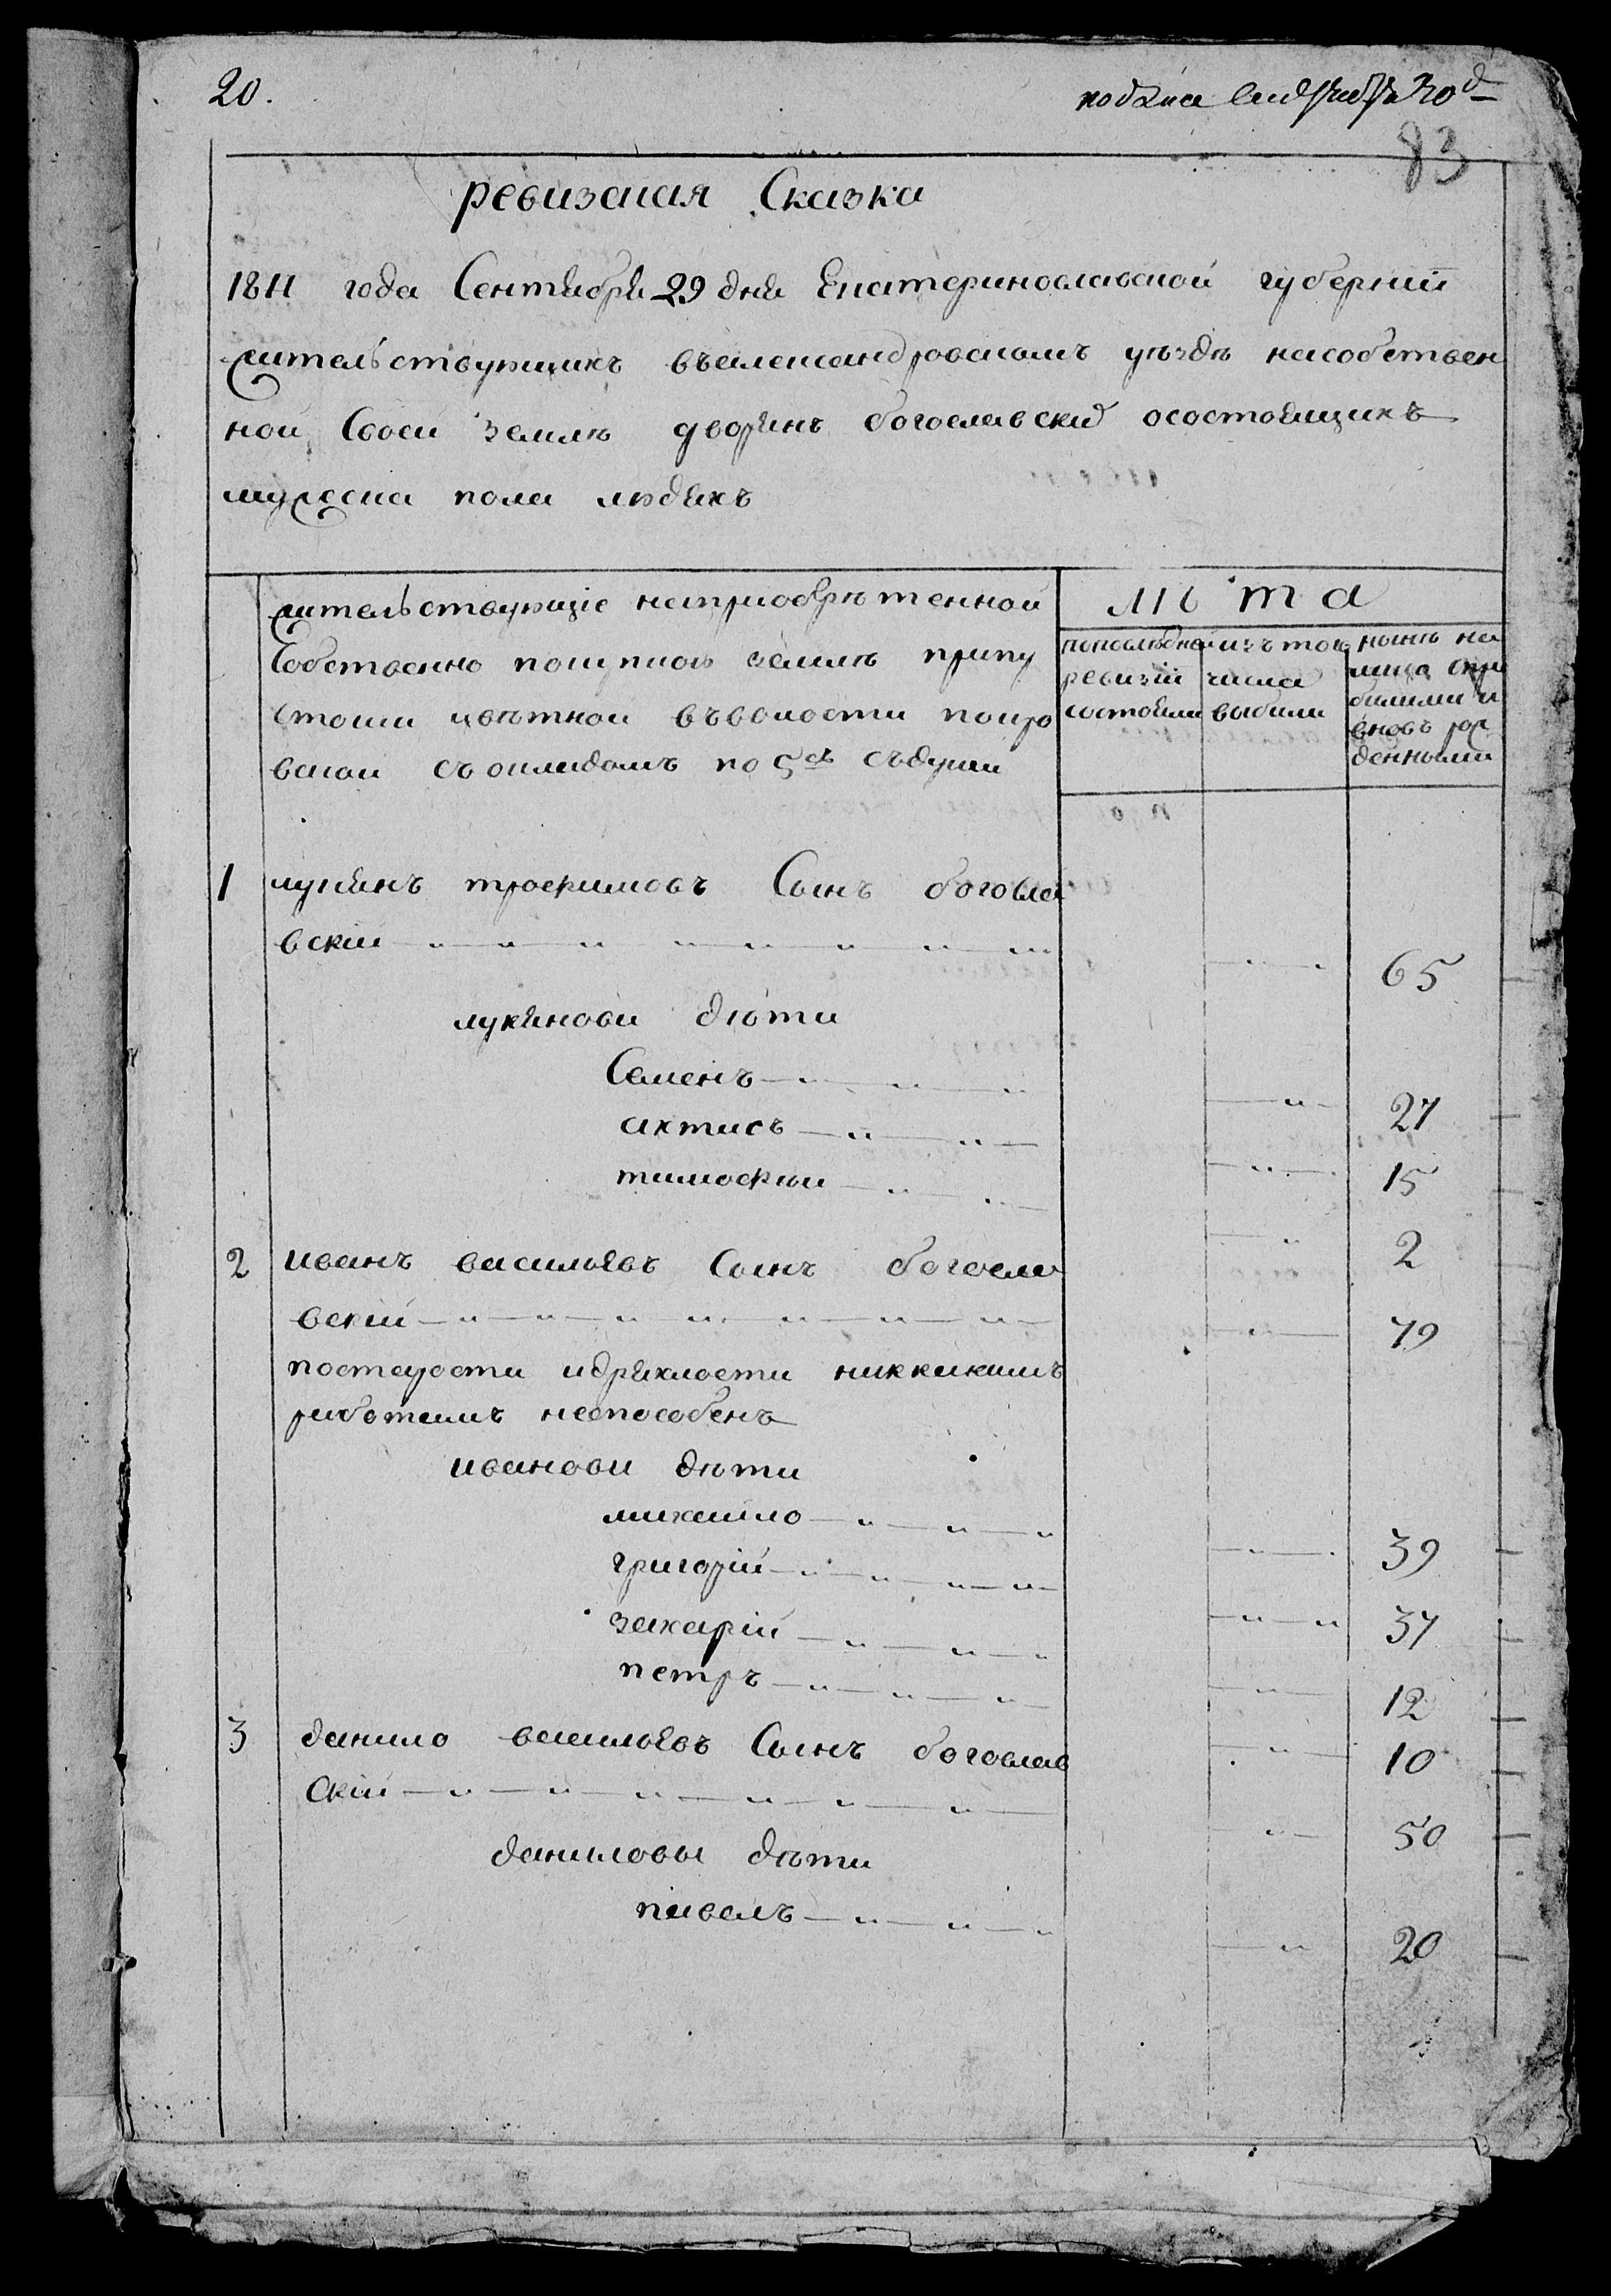 20.
подана сентября 30д
83
ревизская Сказка
1811 года Сентября 29 дня Екатеринославской губернии
жительствующихъ въалександровскомъ уѣздѣ насобствен
ной Своей землѣ дворянъ богославскихъ осостоящихъ
мужеска пола людяхъ
жительствующіе наприобрѣтенной
Собственно покупкою землѣ при
въволости покро
вской съокладомъ по 5 съдуши
лѣта
попослѣдней
ревизіи
состояли
изъ того
числа
выбыли
нынѣ на
лицо съпри
былыми и
вновь рож
денными
1 лукянъ трофимовъ Сынъ богосла
вскій 65
лукянови дѣти
Семенъ 27
ахтисъ 15
тимофѣи 2
2 иванъ васильевъ Сынъ богосла
вскій 79
постарости идряхлости никкакимъ
работамъ неспособенъ
иванови дѣти
михаило 39
григорій 37
захарій 12
петръ 10
3 данило васильевъ Сынъ богослав
Скій 50
даниловы дѣти
павелъ 20